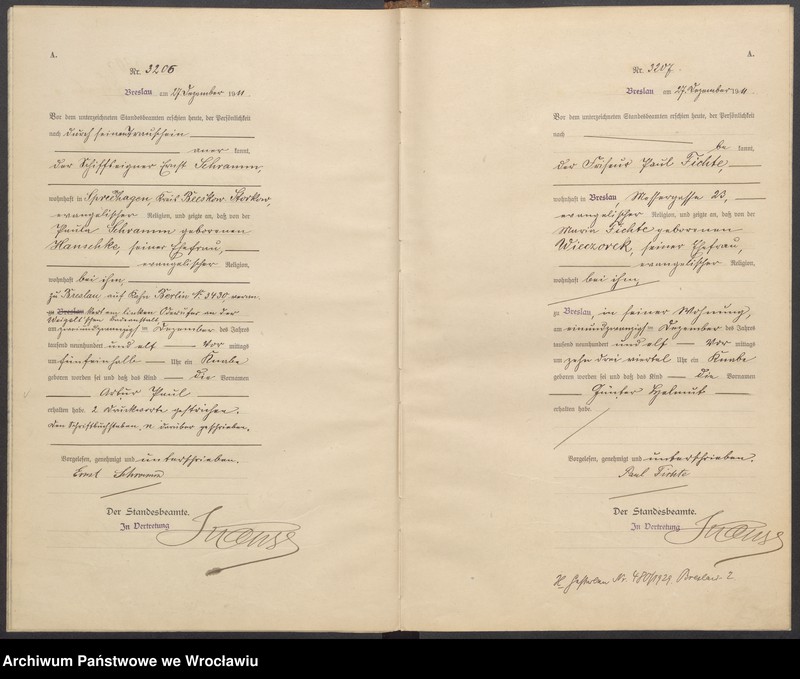 A.
Nr. 3206
Breslau am 27 Dezember 1911.
Vor dem unterzeichneten Standesbeamten erschien heute, der Persönlichkeit
nach durch seinen Trauschein
aner kannt,
der Schiffseigner Ernst Schramm,
wohnhaft in Spreehagen, Kreis Beeskow Storkow,
evangelischer Religion, und zeigte an, daß von der
Paula Schramm geborenen
Hanschke, seiner Ehefrau,
evangelischer Religion,
wohnhaft bei ihm,
zu Breslau, auf Kahn Berlin № 3430
zu Breslau linken Oderufer an der
am zweiundzwanzig ten Dezember des Jahres
tausend neunhundert und elf Vor mittags
um fünfeinhalb Uhr ein Knabe
geboren worden sei und daß das Kind die Vornamen
Artur Paul
erhalten habe. 2 Druckworte gestrichen.
den Schriftbuchstaben n darüber geschrieben.
Vorgelesen, genehmigt und unterschrieben.
Ernst Schramm
Der Standesbeamte.
In Vertretung
A.
Nr. 3207.
Breslau am 27. Dezember 1911.
Vor dem unterzeichneten Standesbeamten erschien heute, der Persönlichkeit
nach
be kannt,
der Friseur Paul Fichte,
wohnhaft in Breslau, Messergasse 23,
evangelischer Religion, und zeigte an, daß von der
Maria Fichte geborenen
Wieczorek, seiner Ehefrau,
evangelischer Religion,
wohnhaft bei ihm,
zu Breslau, in seiner Wohnung,
am einundzwanzig ten Dezember des Jahres
tausend neunhundert und elf Vor mittags
um zehn drei viertel Uhr ein Knabe
geboren worden sei und daß das Kind die Vornamen
Günter Helmut
erhalten habe.
Vorgelesen, genehmigt und unterschrieben.
Paul Fichte
Der Standesbeamte.
In Vertretung
Gestorben Nr. 480/1929 Breslau 2
Archiwum Państwowe we Wrocławiu